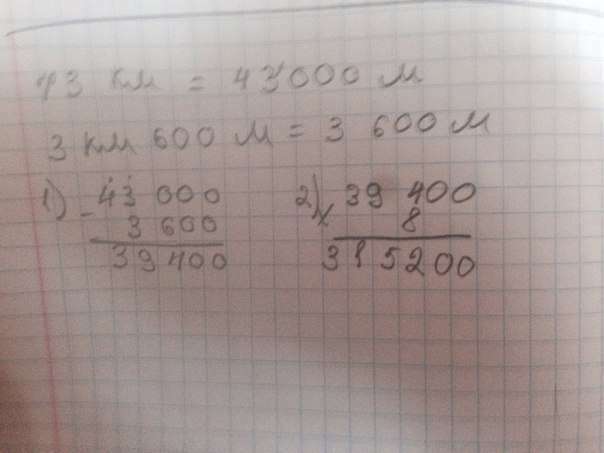 43 км = 43 000 м
3 км 600 м = 3 600 м
1) - 43 000
3 600
39 400
2) х 39 400
8
315200